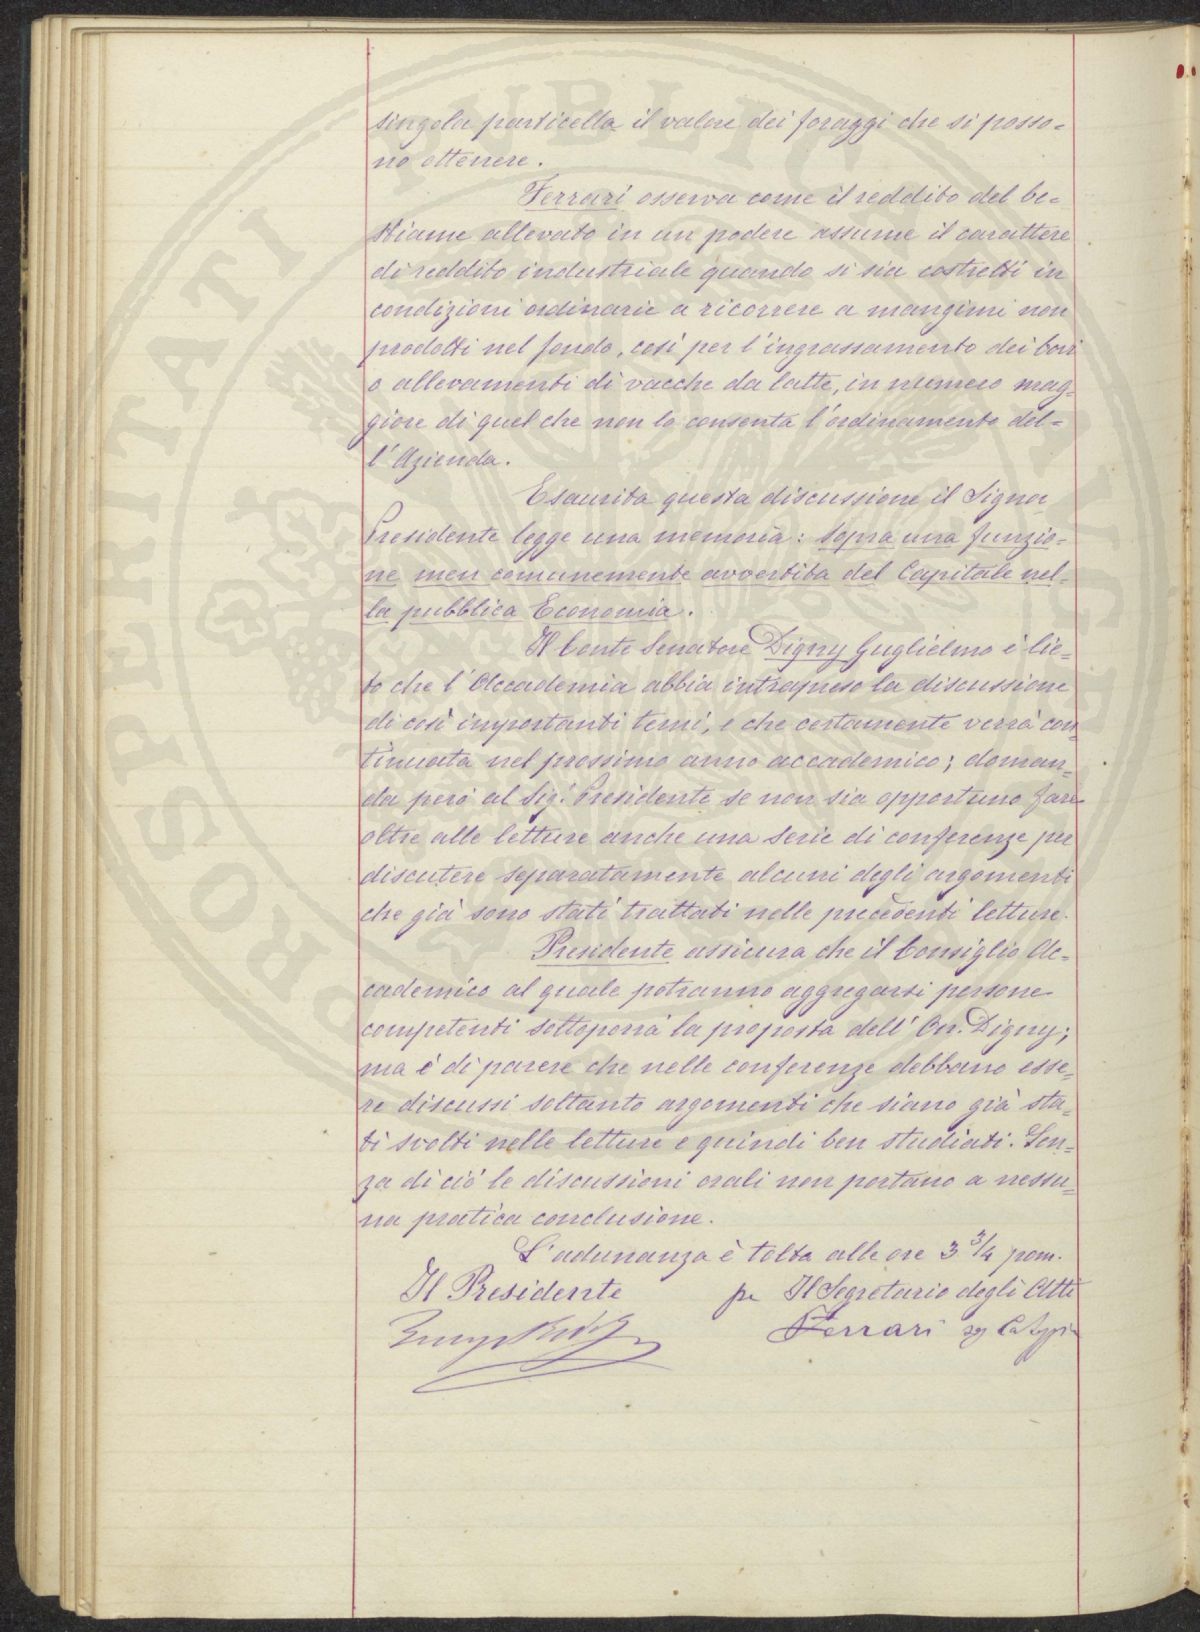 singola particella il valore dei foraggi che si posso=
no ottenere.
Ferrari osserva come il reddito del be=
stiame allevato in un podere assume il carattere
di reddito industriale quando si sia costretti in
condizioni ordinarie a ricorrere a mangimi non
prodotti nel fondo, così per l'ingrassamento dei bovi
o allevamenti di vacche da latte, in numero mag=
giore di quel che non lo consenta l'ordinamento del=
l'Azienda.
Esaurita questa discussione il Signor
Presidente legge una memoria: Sopra una funzio=
ne men comunemente avvertita del Capitale nel=
la pubblica Economia.
Il Conte Senatore Digny Guglielmo è lie=
to che l'Accademia abbia intrapreso la discussione
di così importanti temi, e che certamente verrà con=
tinuata nel prossimo anno accademico; doman=
da però al Sig.r Presidente se non sia opportuno fare
oltre alle letture anche una serie di conferenze per
discutere separatamente alcuni degli argomenti
che già sono stati trattati nelle precedenti letture.
Presidente assicura che il Consiglio Ac=
cademico al quale potranno aggregarsi persone
competenti sottoporrà la proposta dell'On. Digny;
ma è di parere che nelle conferenze debbano esse=
re discussi soltanto argomenti che siano già sta=
ti svolti nelle letture e quindi ben studiati. Sen=
za di ciò le discussioni orali non portano a nessu=
na pratica conclusione.
L'adunanza è tolta alle ore 3 3/4 pom.
Il Presidente pe Il Segretario degli Atti
Ferrari
PROSPERITATI PUBLICAE AVGENDAE